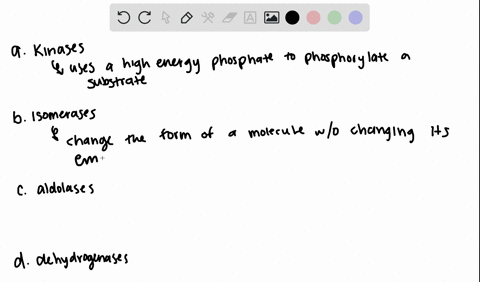 a. Kinases
↳ uses a high energy phosphate to phosphorylate a
substrate
b. Isomerases
↳ change the form of a molecule w/o changing its
em
c. aldolases
d. dehydrogenases